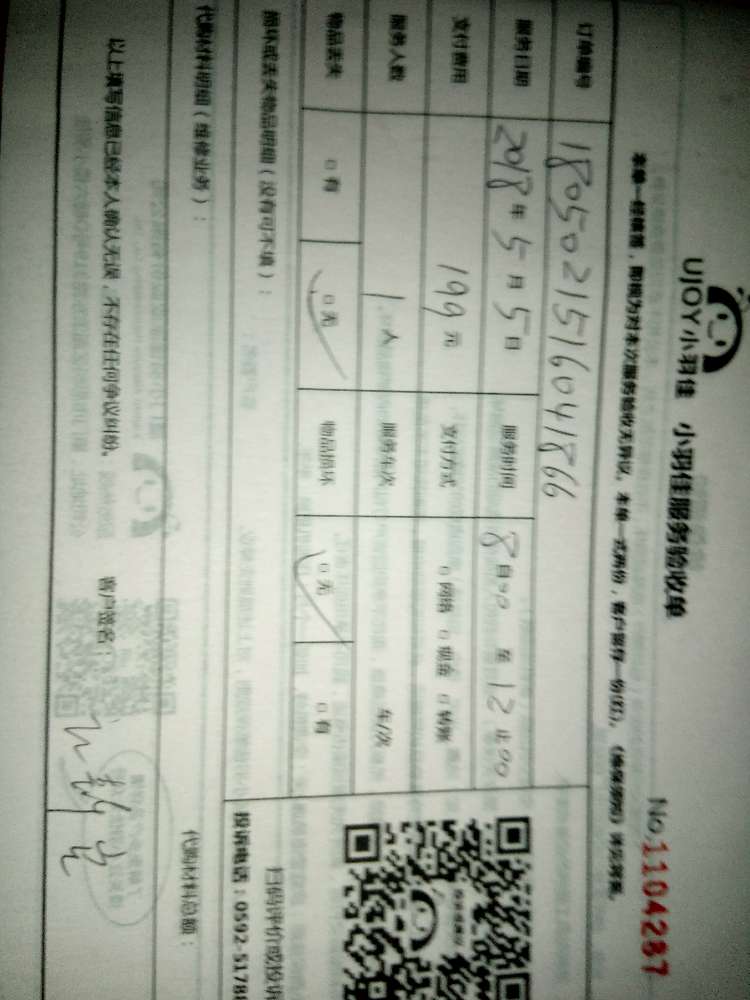 UJOY小羽佳 小羽佳服务验收单
No.1104287
本单一经签署，即视为对本次服务验收无异议。本单一式两份，客户留存一份(红)。
订单编号 1805021516041866
服务日期 2018年5月5日 服务时间 8 00 至 12 00
支付费用 199元 支付方式 □ 网络 □ 现金 □ 转账
服务人数 1人 服务车次 车/次
物品丢失 □ 有 □ 无 物品损坏 □ 无 □ 有
损坏或丢失物品明细（没有可不填）：
扫码评价或投诉
投诉电话：0592-5178
代购材料明细（维修业务）：
代购材料总额：
以上填写信息已经本人确认无误，不存在任何争议纠纷。 客户签名：